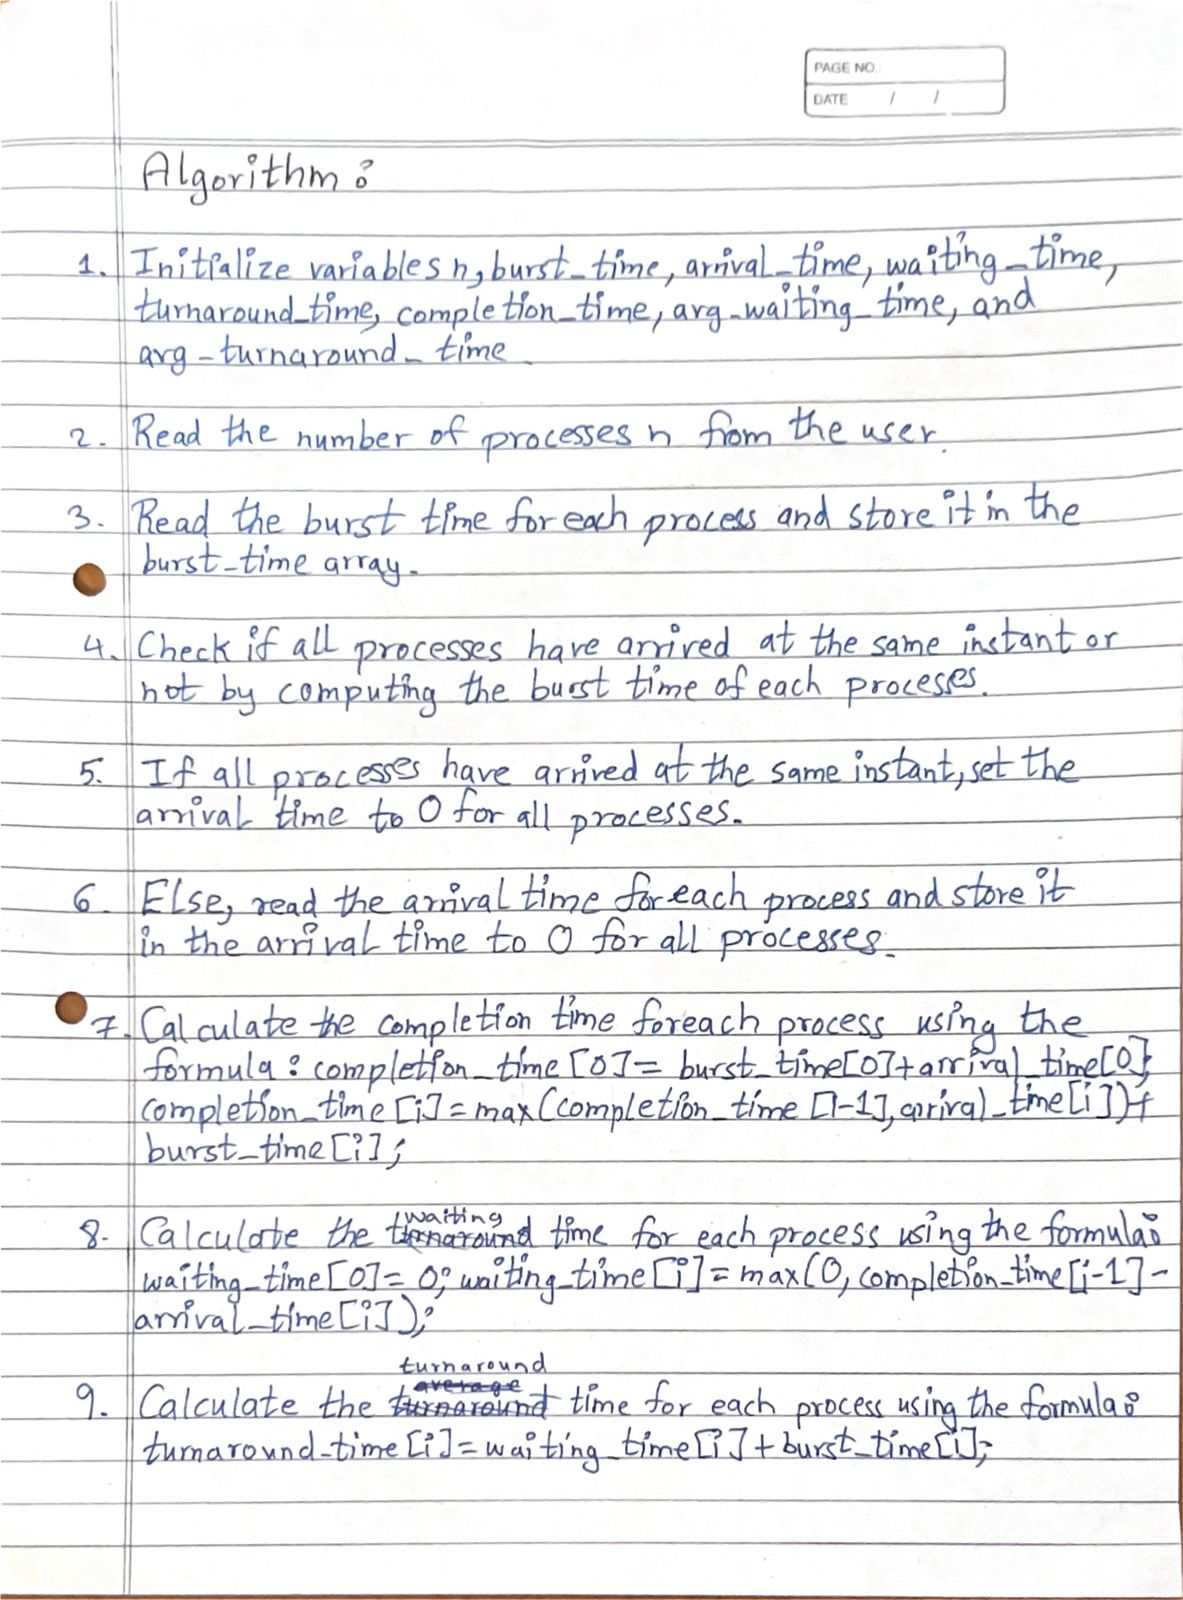 PAGE NO.
DATE / /
Algorithm :
1. Initialize variables n, burst_time, arrival_time, waiting_time,
turnaround_time, completion_time, arg_waiting_time, and
arg_turnaround_time
2. Read the number of processes n from the user.
3. Read the burst time for each process and store it in the
burst_time array.
4. Check if all processes have arrived at the same instant or
not by computing the burst time of each processes.
5. If all processes have arrived at the same instant, set the
arrival time to 0 for all processes.
6. Else, read the arrival time for each process and store it
in the arrival time to 0 for all processes.
7. Calculate the completion time foreach process using the
formula : completion_time [0] = burst_time[0]+arrival_time[0];
completion_time [i] = max(completion_time [i-1], arrival_time[i])+
burst_time [i];
waiting
8. Calculate the turnaround time for each process using the formula:
waiting_time [0] = 0; waiting_time [i] = max(0, completion_time[i-1] -
arrival_time [i]);
turnaround
average
9. Calculate the turnaround time for each process using the formula:
turnaround_time [i] = waiting_time [i] + burst_time [i];